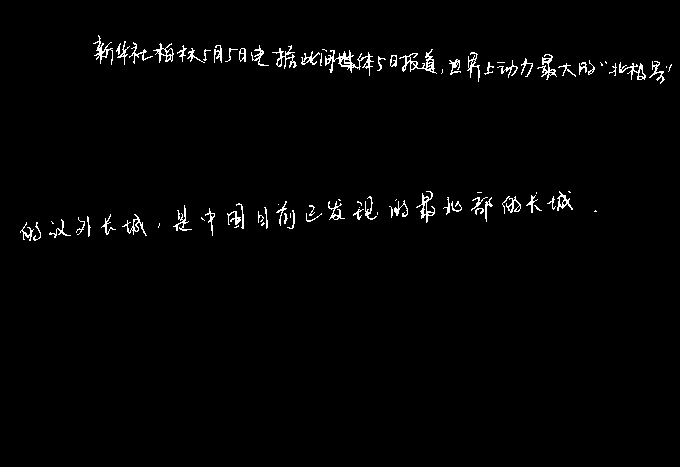 新华社柏林5月5日电 据此间媒体5日报道，世界上动力最大的“北极号”
的汉外长城，是中国目前已发现的最北部的长城．